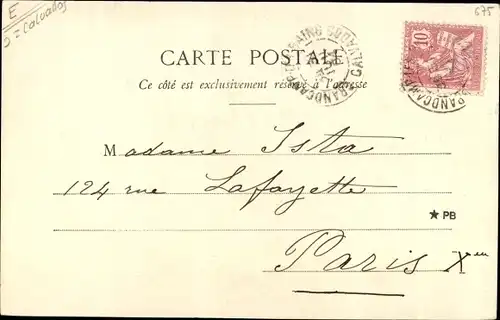 E
= Calvados
675
CARTE POSTALE
Ce côté est exclusivement réservé à l'adresse
GRANDCAMP-LES-BAINS CALVADOS
10
Madame Ista
124 rue Lafayette
★ PB
Paris Xeme